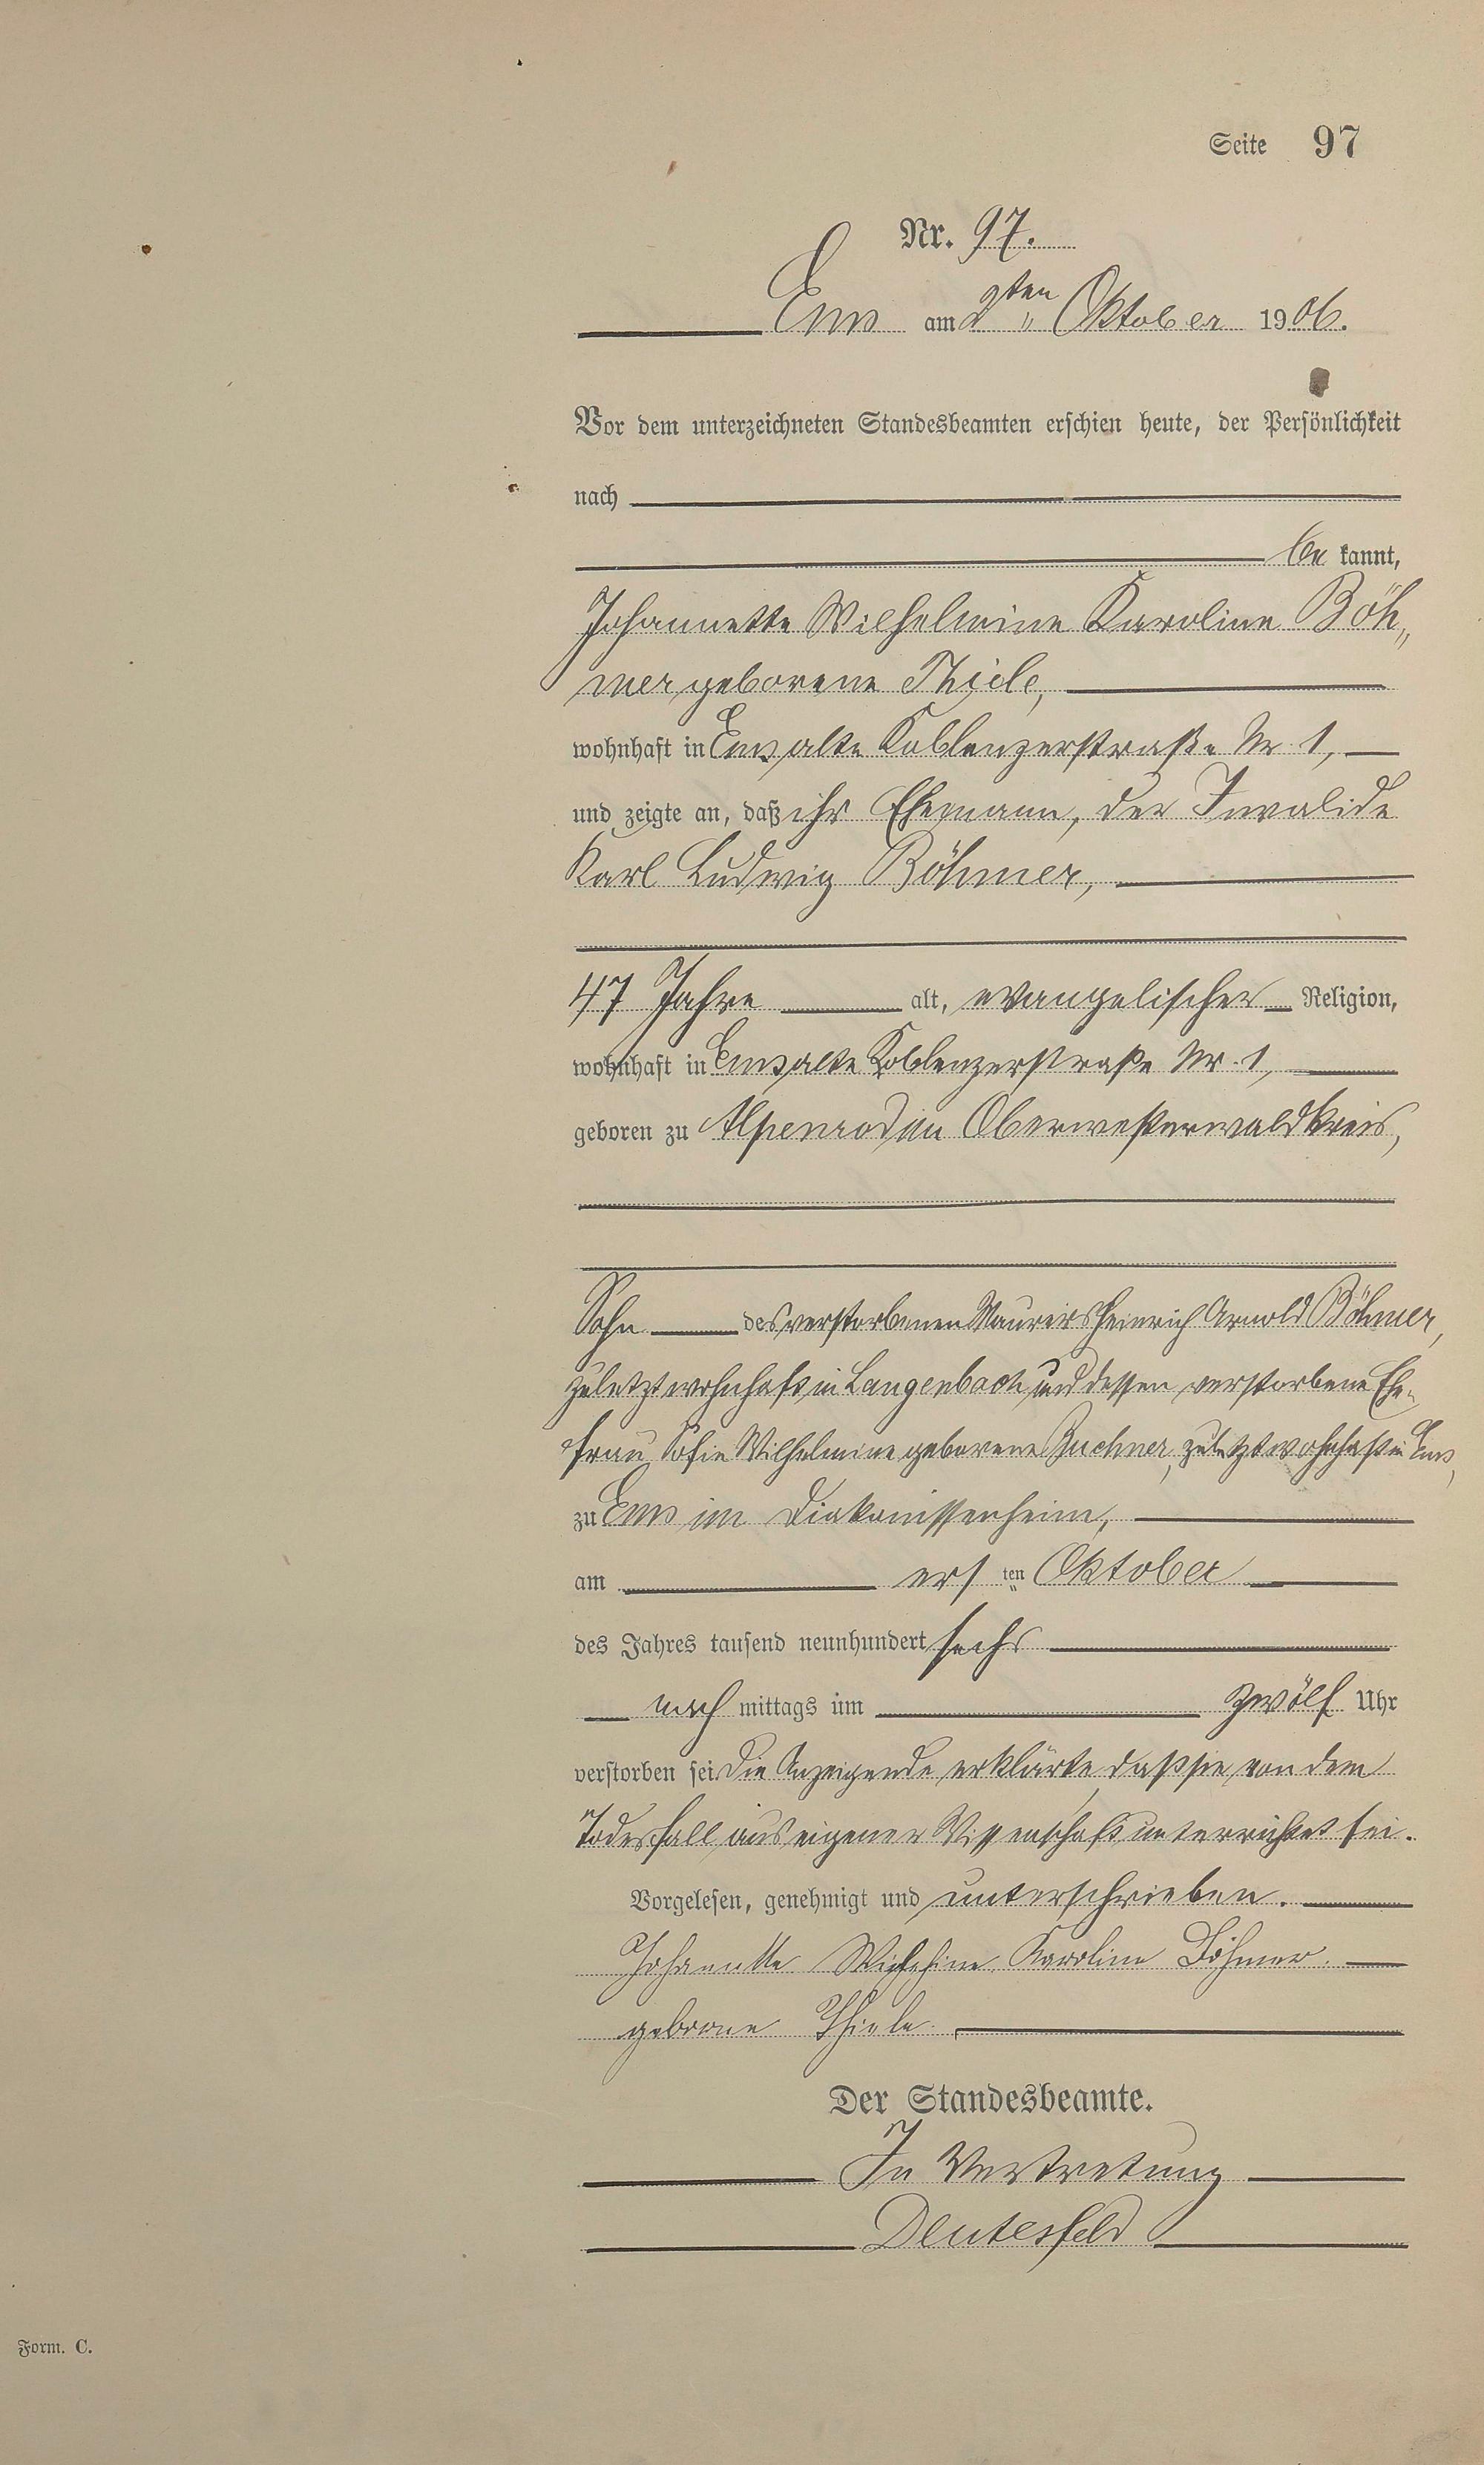 Seite 97
Nr. 97.
Ems am 2ten Oktober 1906.
Vor dem unterzeichneten Standesbeamten erschien heute, der Persönlichkeit
nach
be kannt,
Johannette Wilhelmine Karoline Böh„
mer geborene Thiele,
wohnhaft in Ems, alte Koblenzerstraße Nr. 1,
und zeigte an, daß ihr Ehemann, der Invalide
Karl Ludwig Böhmer,
47 Jahre alt, evangelischer Religion,
wohnhaft in Ems, alte Koblenzerstraße Nr. 1,
geboren zu Alpenrod im Oberwesterwaldkreis,
Sohn des verstorbenen Maurers Heinrich Arnold Böhmer,
zuletzt wohnhaft in Langenbach und dessen verstorbene Ehe-
frau Sofie Wilhelmine geborene Buchner, zuletzt wohnhaft in Ems,
zu Ems im Diakonissenheim,
am ersten Oktober
des Jahres tausend neunhundert sechs
nach mittags um zwölf Uhr
verstorben sei. Die Anzeigende erklärte, daß sie von dem
Todesfall aus eigener Wissenschaft unterrichtet sei.
Vorgelesen, genehmigt und unterschrieben.
Johannette Karoline Böhmer.
geborne Thiele.
Der Standesbeamte.
In Vertretung
Deutesfeld
Form. C.